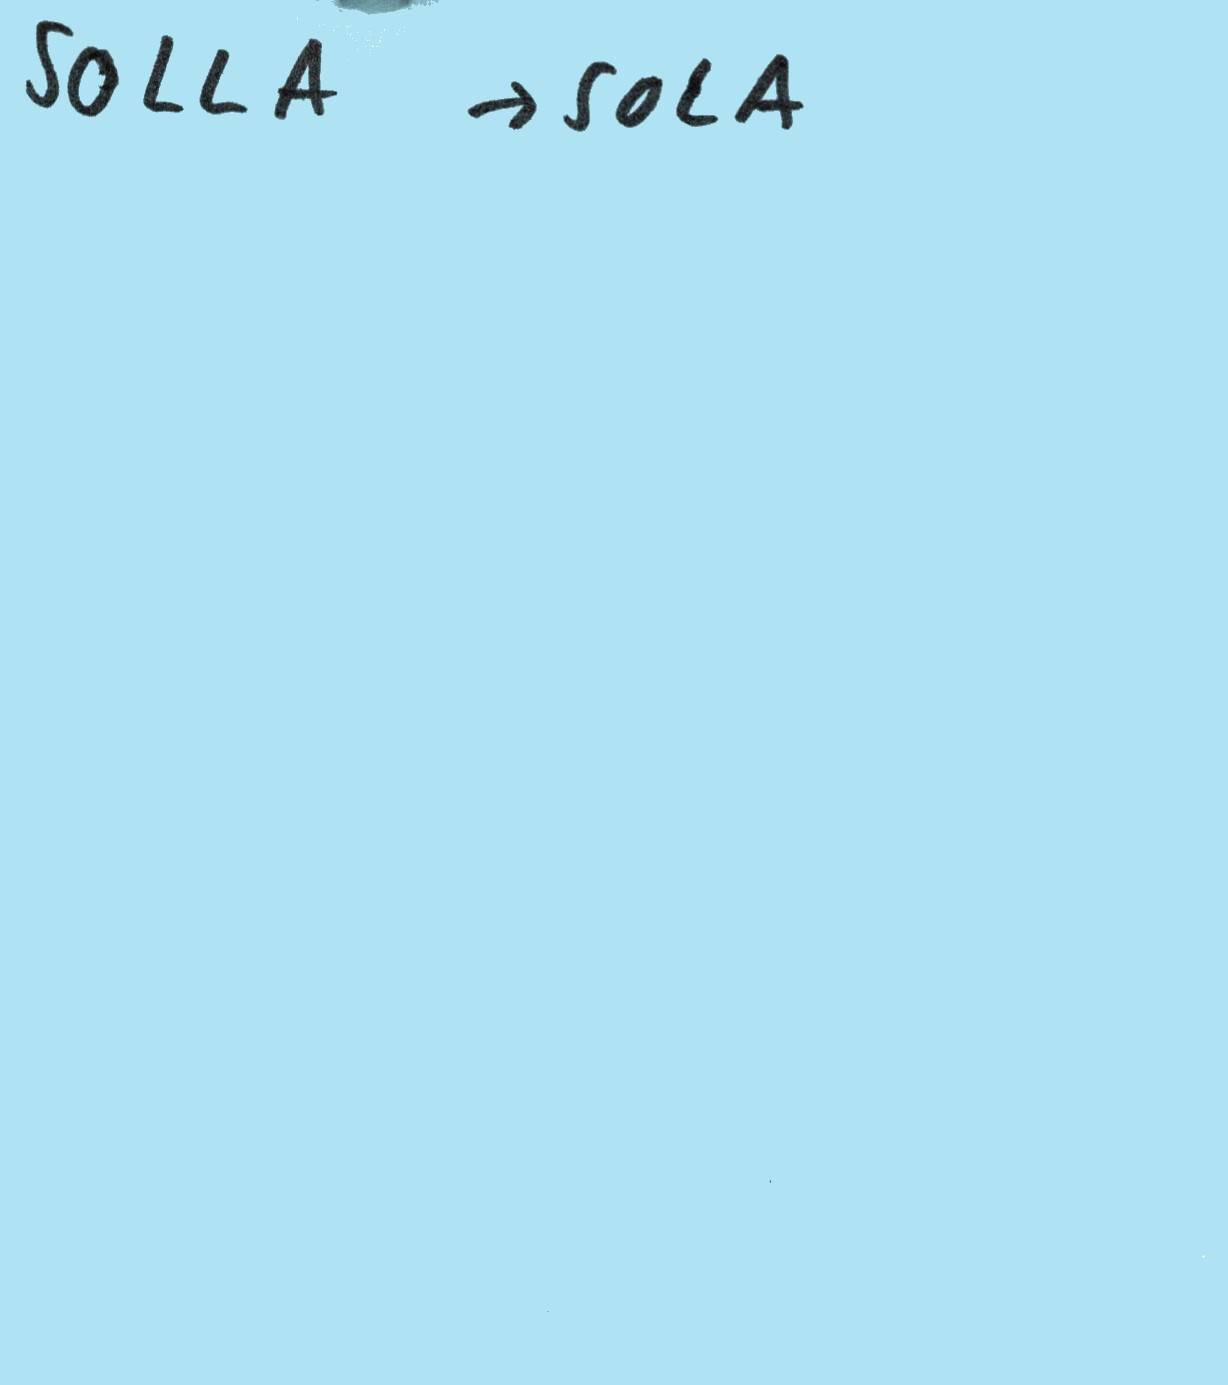 SOLLA → SOLA